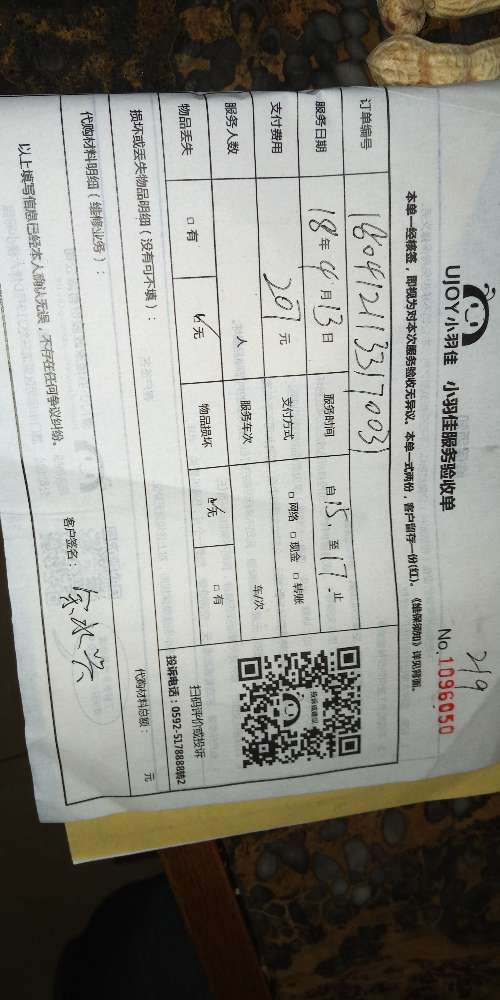 UJOY小羽佳 小羽佳服务验收单
219
No.1096050
本单一经核签，即视为对本次服务验收无异议。本单一式两份，客户留存一份(红)。《维保须知》详见背面。
订单编号 18041213317003
服务日期 18年4月13日 服务时间 自15、至17止
支付费用 207元 支付方式 □网络 □现金 □转账
服务人数 人 服务车次 车/次
物品丢失 □有 ☑无 物品损坏 ☑无 □有
投诉或建议
扫码评价或投诉
投诉电话：0592-5178888转2
损坏或丢失物品明细（没有可不填）：
代购材料明细（维修业务）： 代购材料总额： 元
以上填写信息已经本人确认无误，不存在任何争议纠纷。 客户签名：